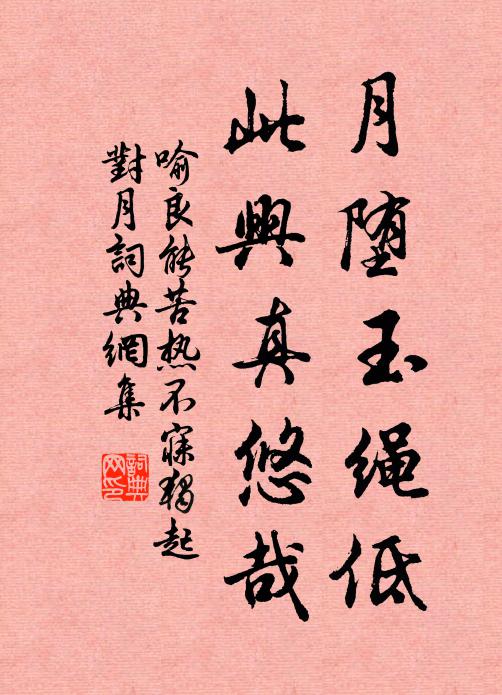 月堕玉绳低
此興真悠哉
喻良能苦热不寐独起
對月詞典網集
詞典网印